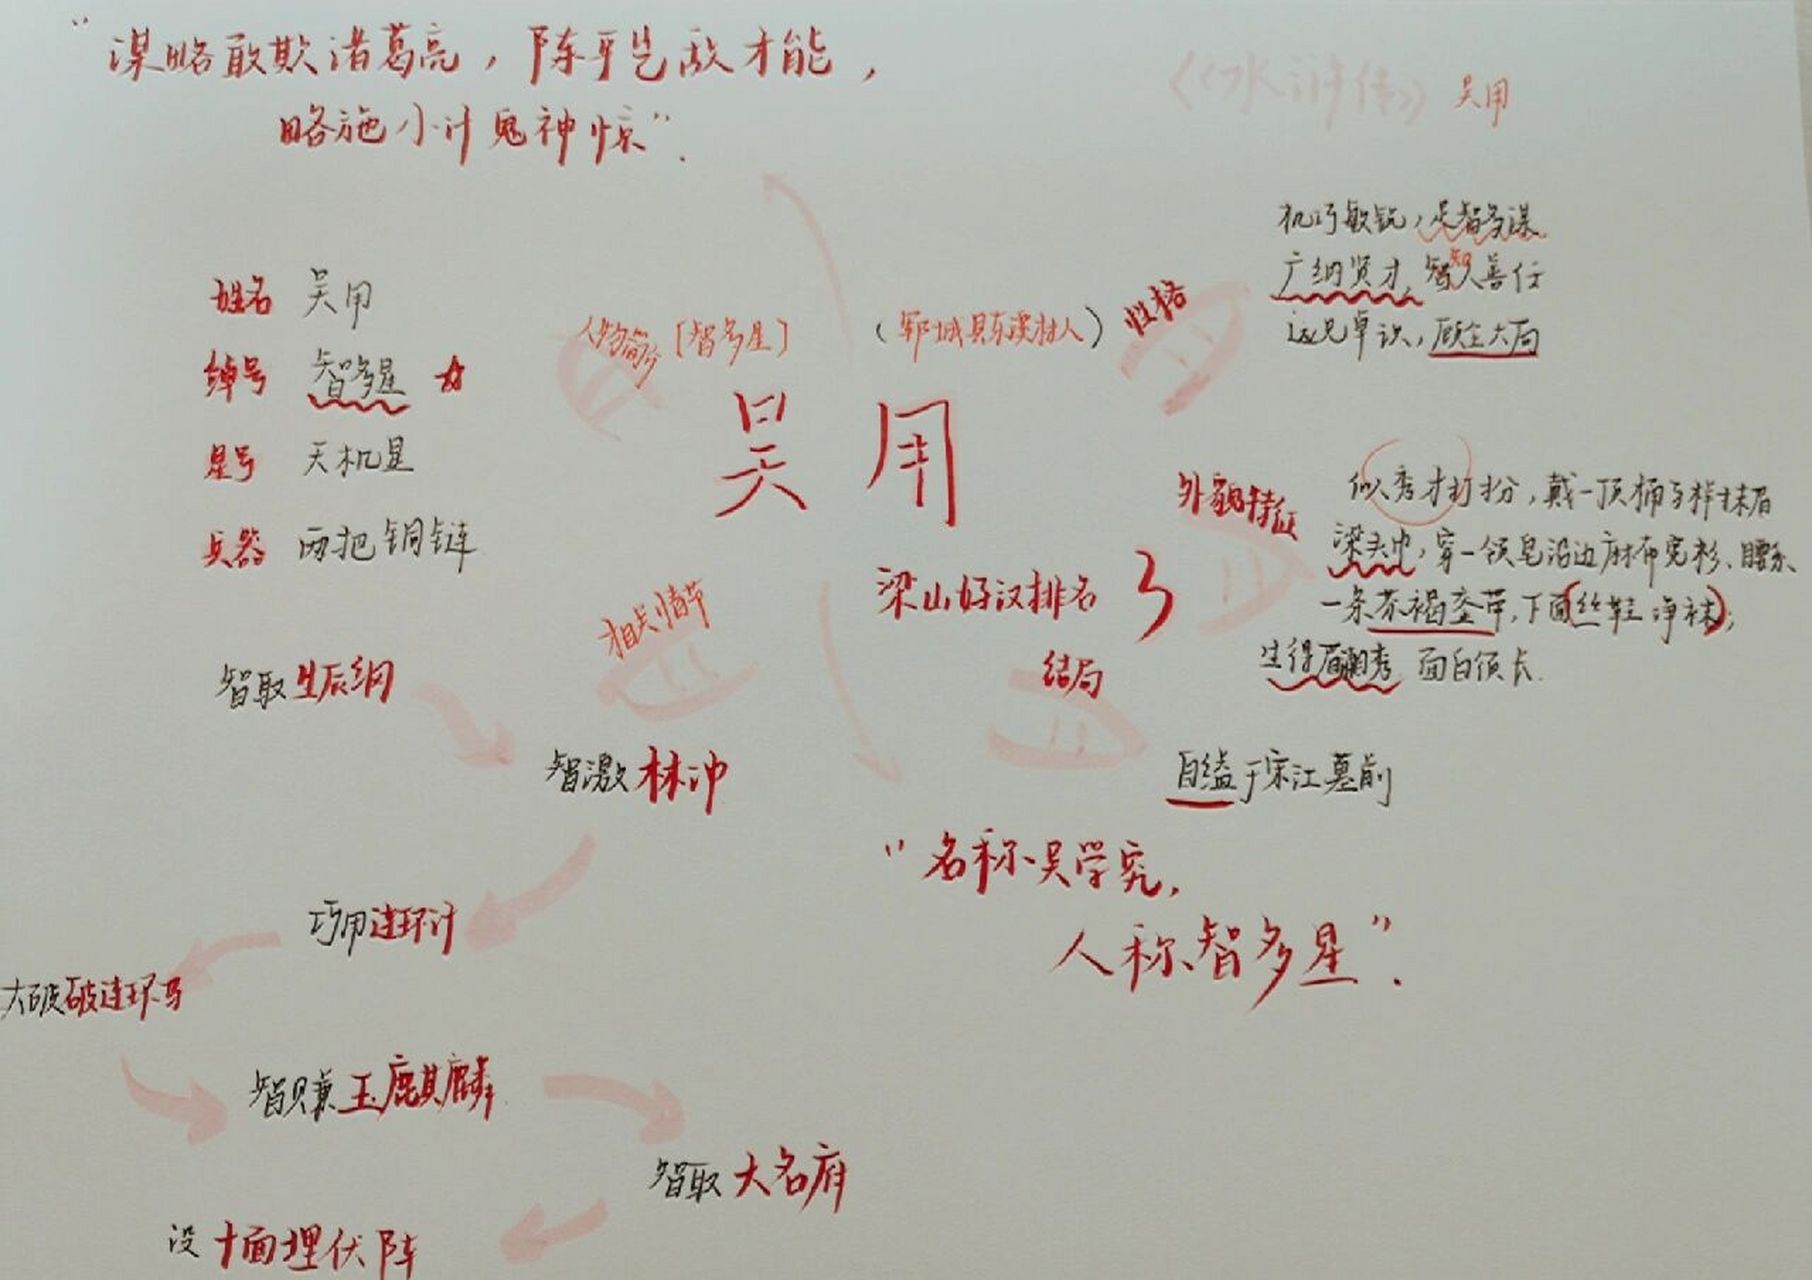 “谋略敢欺诸葛亮，陈平岂敌才能，
略施小计鬼神惊”.
《水浒传》 吴用
姓名 吴用
绰号 智多星
星号 天机星
兵器 两把铜链
人物简介 [智多星]
（郓城县东溪村人）
吴用
性格
机巧敏锐，足智多谋
广纳贤才，知人善任
远见卓识，顾全大局
外貌特征
似秀才打扮，戴一顶桶子样抹眉
梁头巾，穿一领皂沿边麻布宽衫、腰系
一条茶褐銮带，下面丝鞋净袜；
生得眉清目秀 面白须长.
梁山好汉排名 3
结局
自缢于宋江墓前
“名称吴学究，
人称智多星”.
相关情节
智取生辰纲
智激林冲
巧用连环计
大破破连环马
智赚玉麒麟
智取大名府
设十面埋伏阵